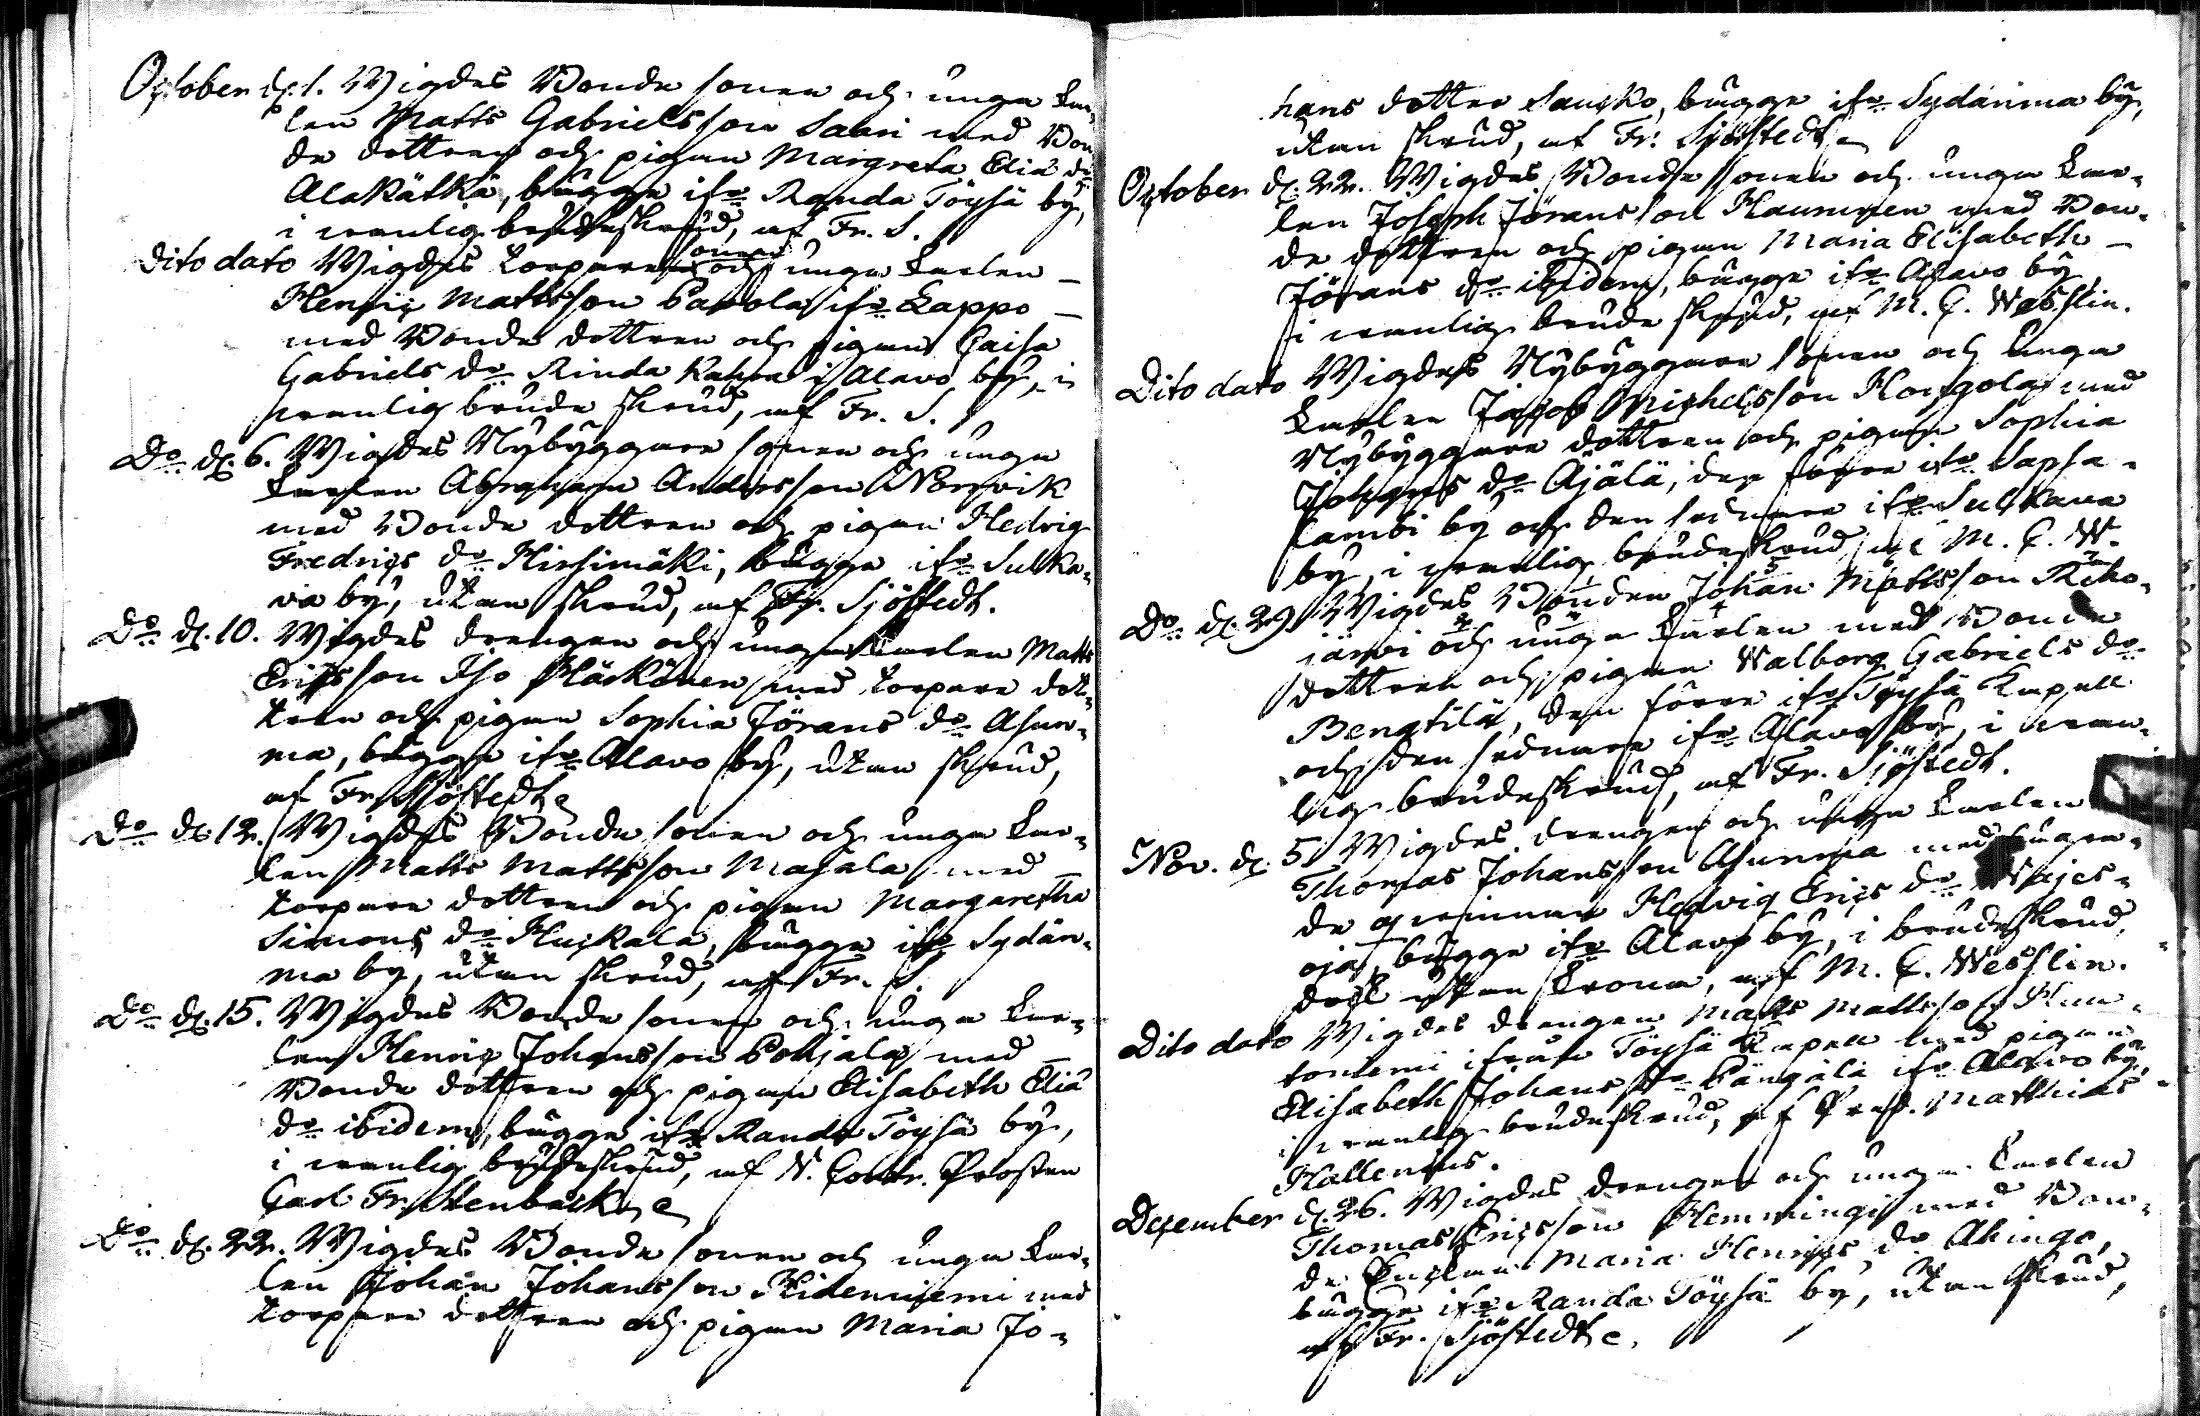 October d. 1. Wigdes Bonde sonen och unga Kar-
len Matts Gabrielsson Saari med Bon
de dottren och pigan Margreta Eliæ dr
Alakätkä, bägge ifr. Randa Töysä by,
i vanlig brudeskrud, af Fr. S.
Dito dato Wigdes torpare sonen och unga Karlen
Henric Mattsson Pavola ifr. Lappo
med Bonde dottren och pigan Caisa
Gabriels dr. Rinda Kahra i Alavo by, i
vanlig brude skrud, af Fr. S.
Do. d. 6. Wigdes Nybyggare sonen och unga
Karlen Abraham Andersson Norrvik
med Bonde dottren och pigan Hedvig
Fredrics dr. Hirsimäki, bägge ifr. Sulka-
va by, utan skrud, af Fr. Sjöstedt.
Do. d. 10. Wigdes drengen och unga Karlen Matts
Ericsson Iso Härkönen med torpare dot-
tren och pigan Sophia Jörans dr. Asun-
ma, bägge ifr. Alavo by, utan skrud,
af Fr. Sjöstedt
Do. d. 12. Wigdes Bonde sonen och unga Kar-
len Matts Mattsson Masala med
torpare dottren och pigan Margaretha
Simons dr. Huckala, bägge ifr. Sydän-
ma by, utan skrud, af Fr. S.
Do. d. 15. Wigdes Bonde sonen och unga Kar-
len Henric Johansson Pohjala med
Bonde dottren och pigan Elisabeth Eliæ
dr. ibidem, bägge ifr. Randa Töysä by,
i vanlig brudeskrud, af N. Contr. Prosten
Carl Fr. Stenbäck
Do. d. 22. Wigdes Bonde sonen och unga Kar-
len Johan Johansson Hideniemi med
torpare dottren och pigan Maria Jo-
hans dotter Saucko, bägge ifr. Sydänma by,
utan skrud, af Fr. Sjöstedt
October d. 22. Wigdes Bonde sonen och unga Kar-
len Joseph Jöransson Hauninen med Bon-
de dottren och pigan Maria Elisabeth
Jörans dr. ibidem, bägge ifr. Alavo by
i vanlig brude skrud, af M. C. Wesslin.
Dito dato Wigdes Nybyggare sonen och unga
Karlen Jacob Michelsson Kongola med
Nybyggare dottren och pigan Sophia
Johans dr. Äjälä, den förre ifr. Sapsa-
lambi by och den sednare ifr. Sulkava
by, i vanlig brudeskrud, af M. C. W.
Do. d. 29 Wigdes Bonden Johan Mattsson Riiho-
järvi och unga Karlen med Bonde
dottren och pigan Walborg Gabriels dr
Bengtilä, den förre ifr. Töysä Kapell
och den sednare ifr. Alavo by, i van-
lig brudeskrud, af Fr. Sjöstedt.
Nov. d. 5 Wigdes drengen och unga Karlen
Thomas Johansson Asunma med
de qvinnan Hedvig Erics dr.
oja, bägge ifr. Alavo by, i brudeskrud,
dock utan Krona, af M. C. Wesslin.
Dito dato Wigdes drengen Matts Mattsson Hun-
toniemi ifrån Töysä Kapell med pigan
Elisabeth Johans dr. Pängälä ifr. Alavo by,
i vanlig brudeskrud, af Præd. Matthias
Hallenius.
December d. 26. Wigdes drengen och unga Karlen
Thomas Ericsson Hemmingi med Bon-
de Enckan Maria Henrics dr. Ahinga,
bägge ifr. Randa Töysä by, utan skrud,
af Fr. Sjöstedt.